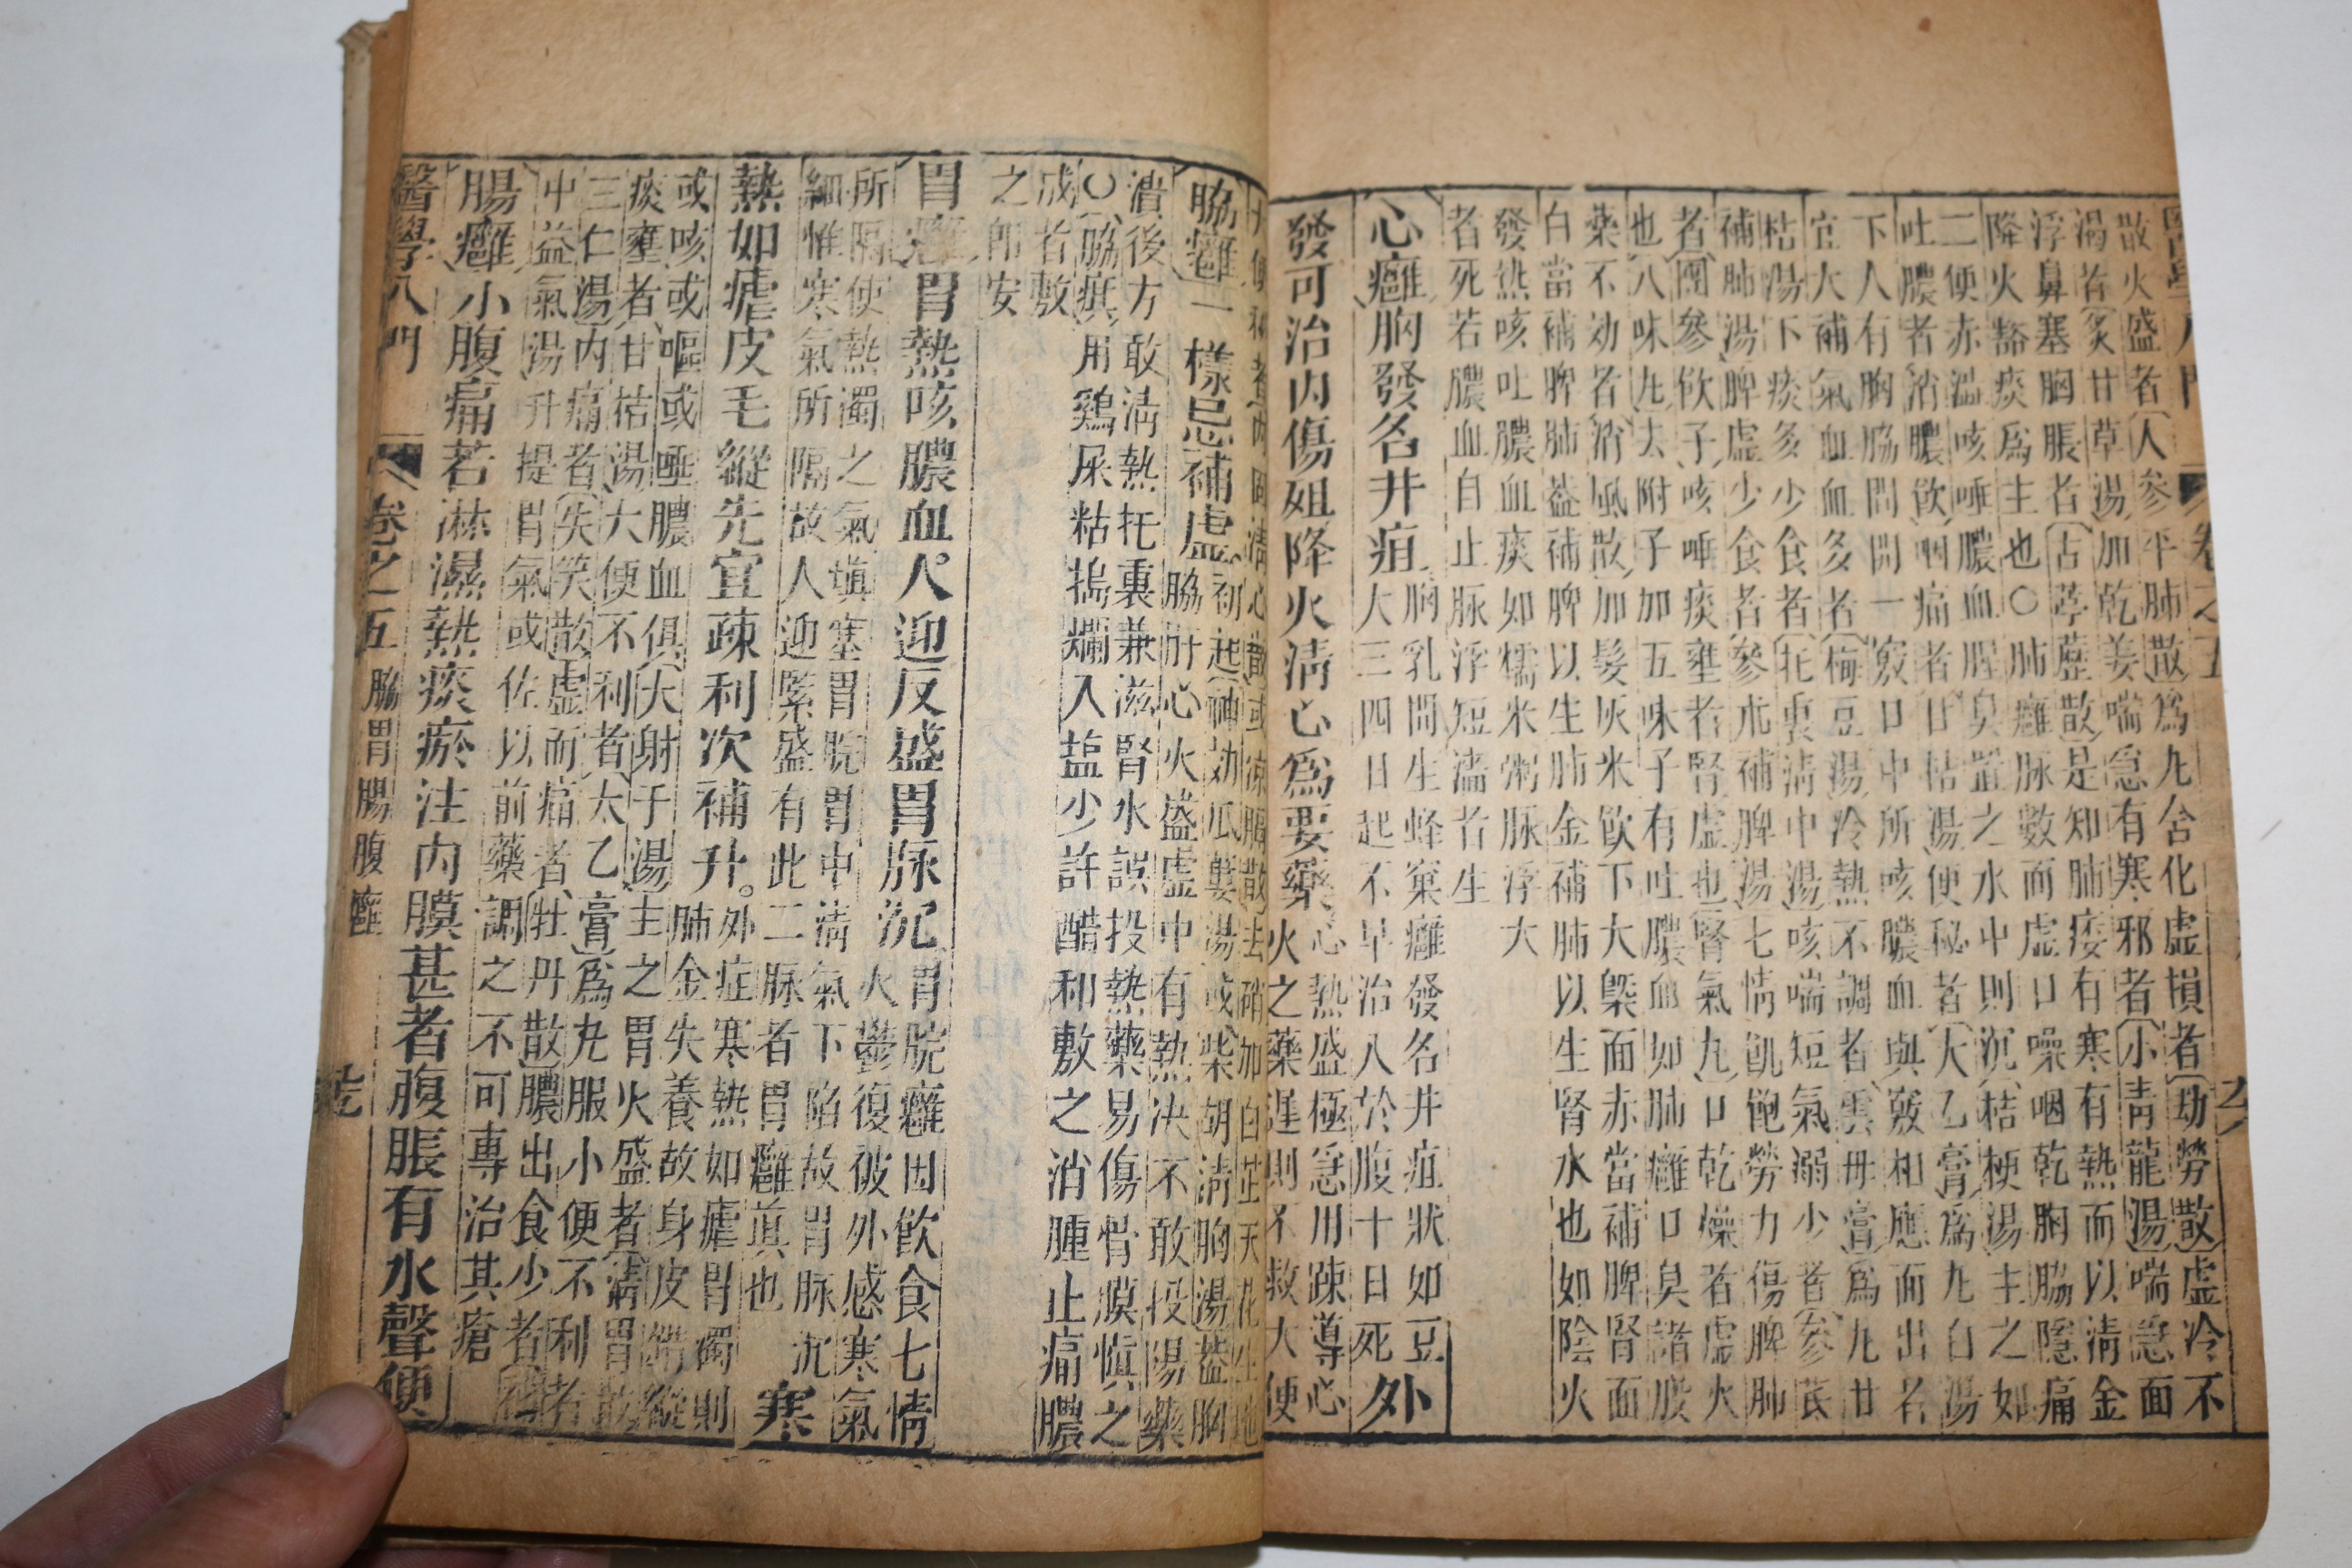 散火盛者人參平肺散爲九含化虛損者劫勞散虛冷不
渴者炙甘草湯加乾姜喘急有寒邪者小靑龍湯喘急面
浮鼻塞胸脹者古葶藶散是知肺痿有寒有熱而以淸金
降火豁痰爲主也○肺癰脉數而虛口噪咽乾胸脇隱痛
二便赤澁咳唾膿血腥臭置之水中則沉桔梗湯主之如
吐膿者消膿飮咽痛者甘桔湯便秘者太乙膏爲九白湯
下人有胸脇間開一竅口中所咳膿血與竅相應而出名
宜大補氣血血多者梅豆湯冷熱不調者雲母膏爲九甘
桔湯下痰多少食者托裏淸中湯咳喘短氣溺少者參芪
補肺湯脾虛少食者參朮補脾湯七情飢飽勞力傷脾肺
者團參飮子咳唾痰壅者腎虛也腎氣九口乾燥者虛火
也八味九去附子加五味子有吐膿血如肺癰口臭諸般
藥不効者消風散加髮灰米飮下大槩面赤當補脾腎面
白當補脾肺葢補脾以生肺金補肺以生腎水也如陰火
發熱咳吐膿血痰如糯米粥脉浮大
者死若膿血自止脉浮短濇者生
心癰胸發名井疽胸乳間生蜂窠癰發名井疽狀如豆
大三四日起不早治入於腹十日死外
發可治內傷殂降火淸心爲要藥心熱盛極急用疎導心
火之藥遲則不救大便
脇癰一樣忌補虛初起神効瓜蔞湯或柴胡淸胸湯葢胸
脇肝心火盛虛中有熱決不敢投陽藥
潰後方敢淸熱托裏兼滋腎水誤投熱藥易傷骨膜愼之
○脇疽用鷄屎粘搗爛入鹽少許醋和敷之消腫止痛膿
成者敷
之即安
胃癰胃熱咳膿血人迎反盛胃脉沉胃脘癰因飮食七情
火鬱復被外感寒氣
所隔使熱濁之氣塡塞胃脘胃中淸氣下陷故胃脉沉
細惟寒氣所隔故人迎緊盛有此二脉者胃癰眞也寒
熱如瘧皮毛縱先宜疎利次補升外症寒熱如瘧胃濁則
肺金失養故身皮錯縱
或咳或嘔或唾膿血俱大射于湯主之胃火盛者淸胃散
痰壅者甘桔湯大便不利者太乙膏爲九服小便不利者
三仁湯內痛者失笑散虛而痛者牡丹散膿出食少者補
中益氣湯升提胃氣或佐以前藥調之不可專治其瘡
腸癰小腹痛若淋濕熱痰瘀注內膜甚者腹脹有水聲便
醫學入門 卷之五 脇胃腸腹癰